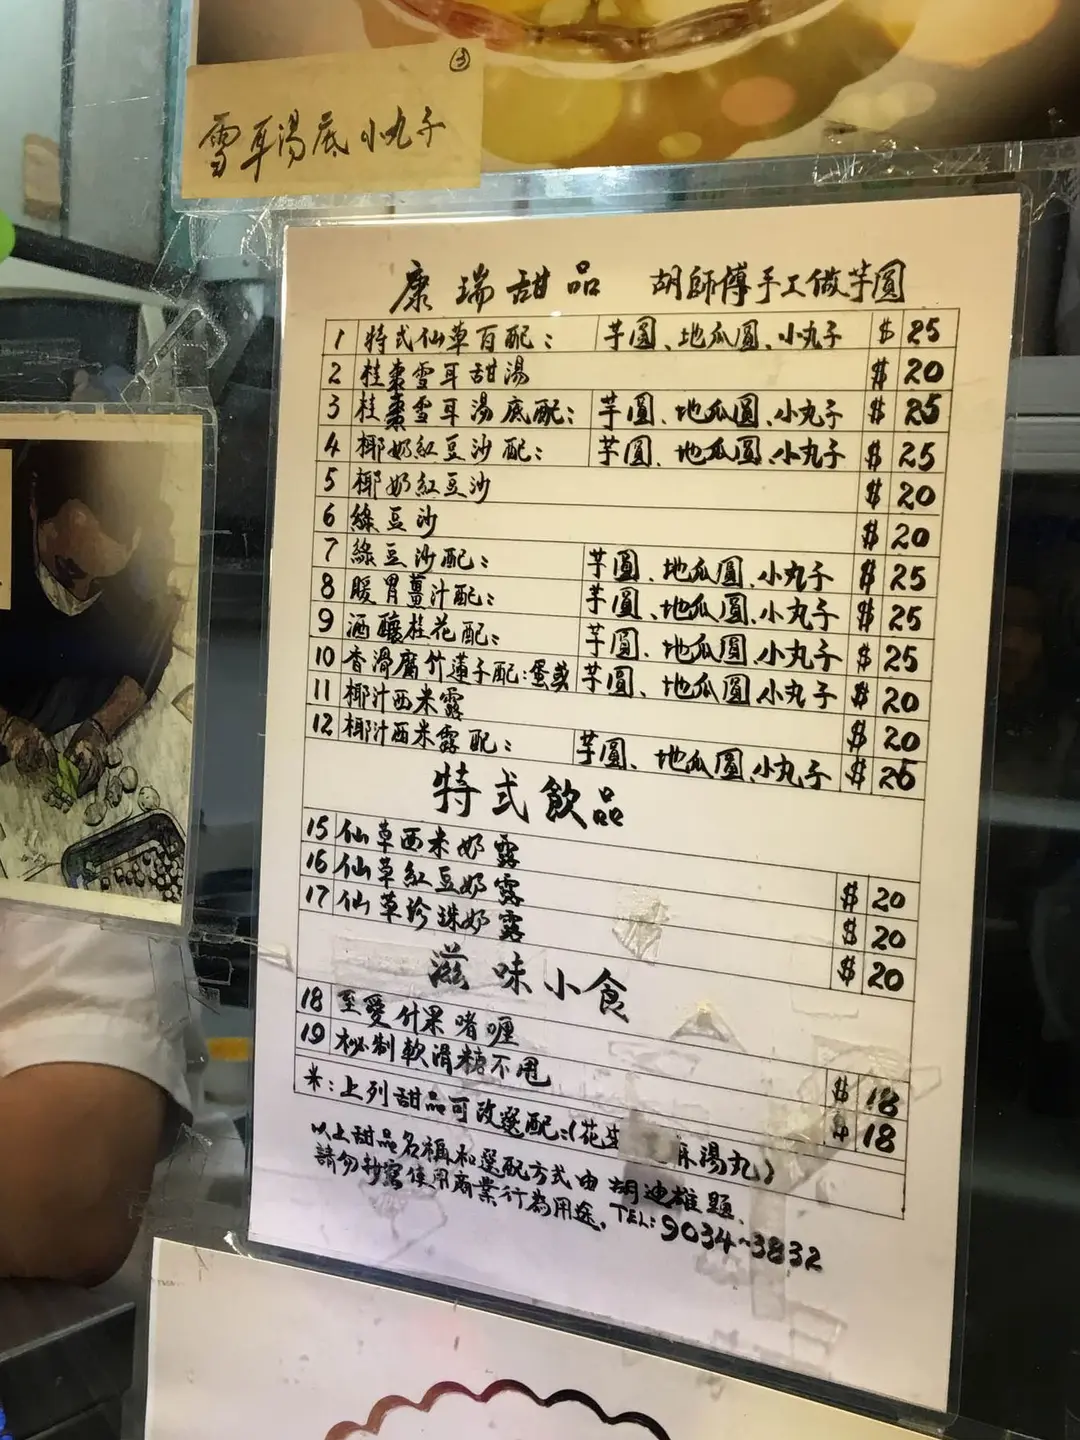 ③
雪耳湯底小丸子
康瑞甜品 胡師傅手工做芋圓
1 特式仙草百配: 芋圓、地瓜圓、小丸子 $ 25
2 桂棗雪耳甜湯 $ 20
3 桂棗雪耳湯底配: 芋圓、地瓜圓、小丸子 $ 25
4 椰奶紅豆沙配: 芋圓、地瓜圓、小丸子 $ 25
5 椰奶紅豆沙 $ 20
6 綠豆沙 $ 20
7 綠豆沙配: 芋圓、地瓜圓、小丸子 $ 25
8 暖胃薑汁配: 芋圓、地瓜圓、小丸子 $ 25
9 酒釀桂花配: 芋圓、地瓜圓、小丸子 $ 25
10 香滑腐竹蓮子配:蛋或 芋圓、地瓜圓、小丸子 $ 20
11 椰汁西米露 $ 20
12 椰汁西米露配: 芋圓、地瓜圓、小丸子 $ 25
特式飲品
15 仙草西米奶露 $ 20
16 仙草紅豆奶露 $ 20
17 仙草珍珠奶露 $ 20
滋味小食
18 至愛什果啫喱 $ 18
19 秘制軟滑糖不甩 $ 18
米:上列甜品可改選配:(花生 麻湯丸)
以上甜品名稱和選配方式由胡迪雄題、
請勿抄寫使用商業行為用途。TEL: 9034-3832